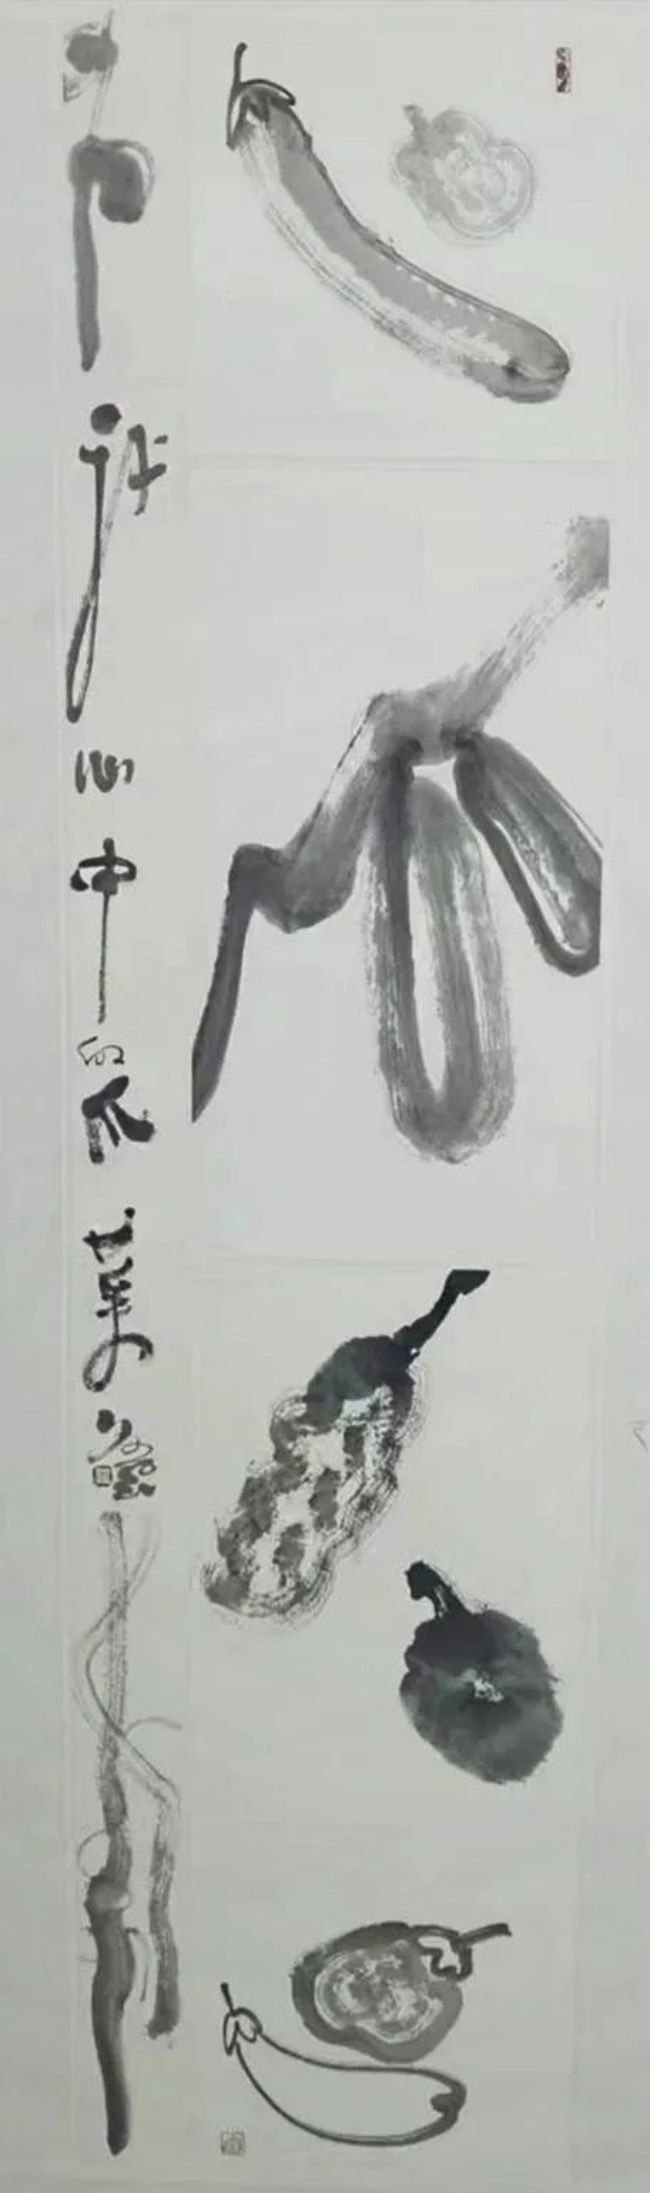 许心中的瓜菜